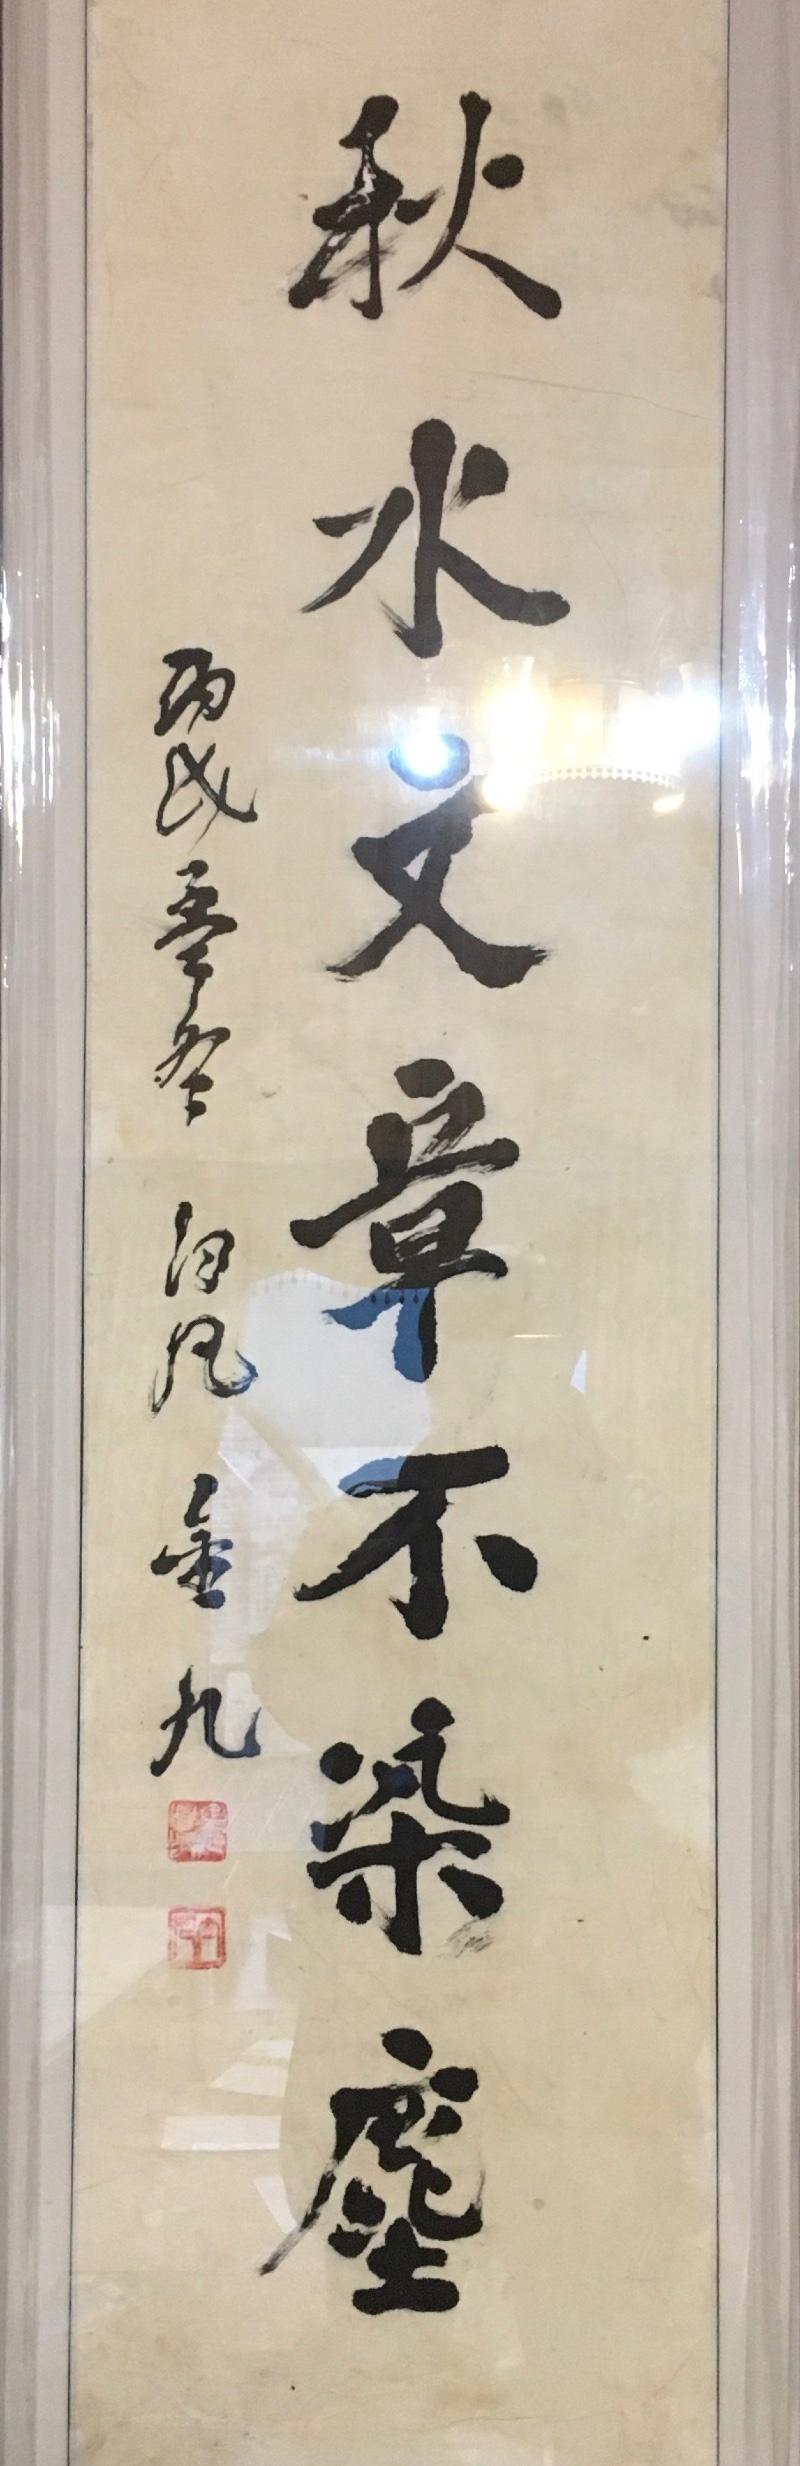 秋水文章不染塵
丙戌季冬 白凡 金九